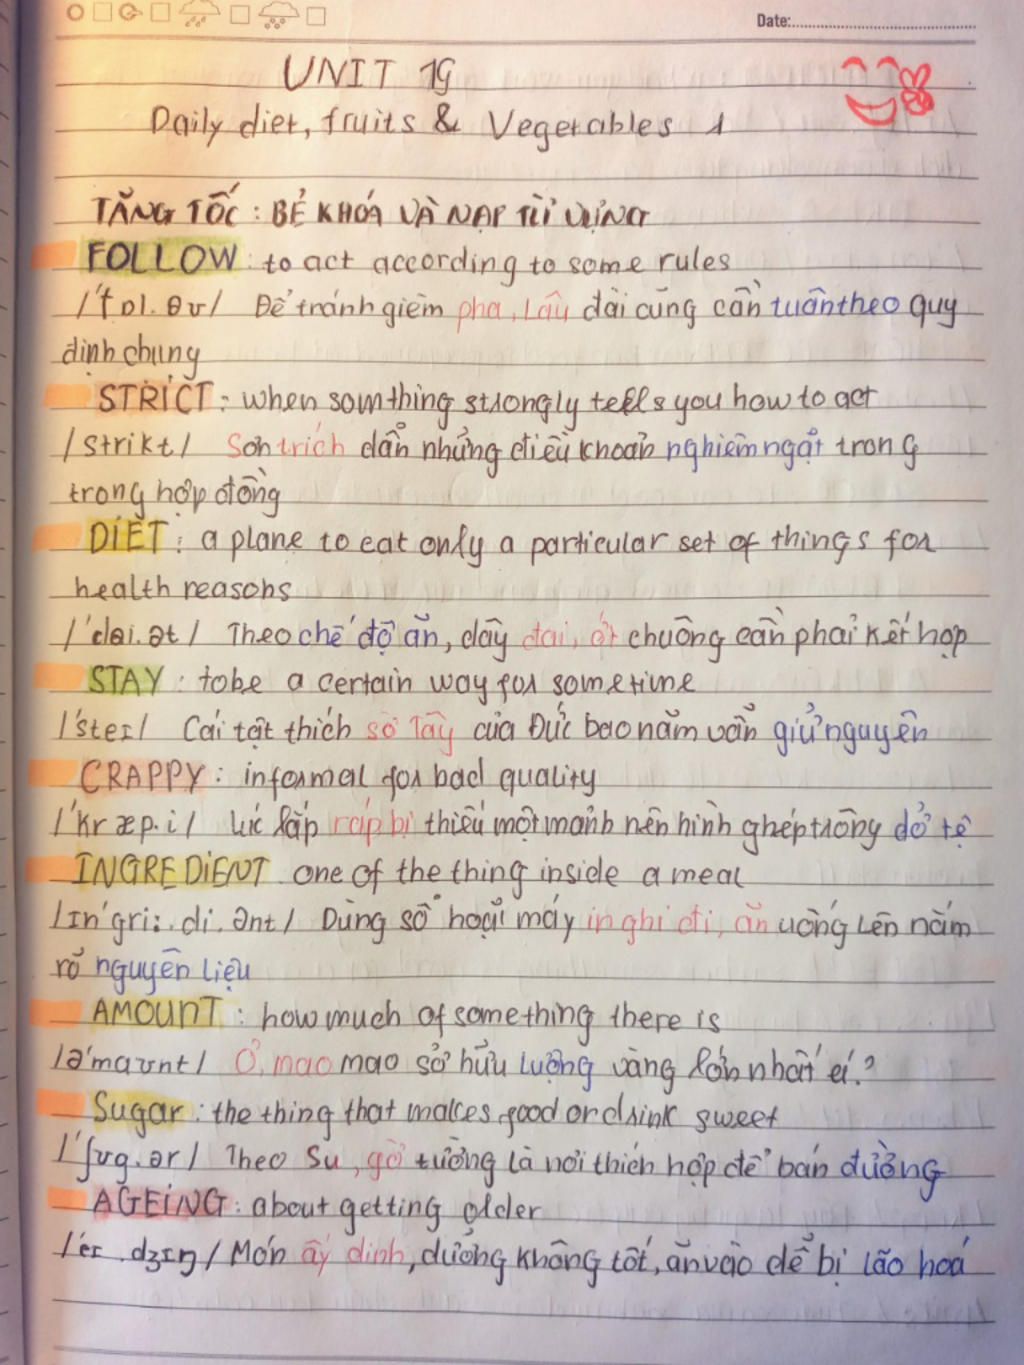 Date:
UNIT 19
Daily diet, fruits & Vegetables 1
TĂNG TỐC : BẺ KHÓA VÀ NẠP TỪ VỰNG
FOLLOW : to act according to some rules
/ˈfɒl.əʊ/ Để tránh gièm pha, Lâu đài cũng cần tuân theo quy
định chung
STRICT : when somthing strongly tells you how to act
/strikt/ Sơn trích dẫn những điều khoản nghiêm ngặt trong
trong hợp đồng
DIET : a plane to eat only a particular set of things for
health reasons
/ˈdai.ət/ Theo chế độ ăn, dây đai, ớt chuông cần phải kết hợp
STAY : to be a certain way for sometime
/ˈsteɪ/ Cái tật thích sờ Tây của Đức bao năm vẫn giữ nguyên
CRAPPY : informal for bad quality
/ˈkræp.i/ Lúc lắp ráp bị thiếu một mảnh nên hình ghép trông dở tệ
INGREDIENT one of the thing inside a meal
/ɪnˈgri:.di.ənt/ Dùng số hoại máy in ghi đi, ăn uống lên nắm
rõ nguyên liệu
AMOUNT : how much of something there is
/əˈmaʊnt/ Ơ, mao mao sở hữu lượng vàng lớn nhất ei?
Sugar : the thing that makes food or drink sweet
/ˈʃʊg.ər/ Theo Su, gờ tường là nơi thích hợp để bán đường
AGEING : about getting older
/ˈeɪ.dʒɪŋ/ Món ấy dinh, dưỡng không tốt, ăn vào dễ bị lão hoá